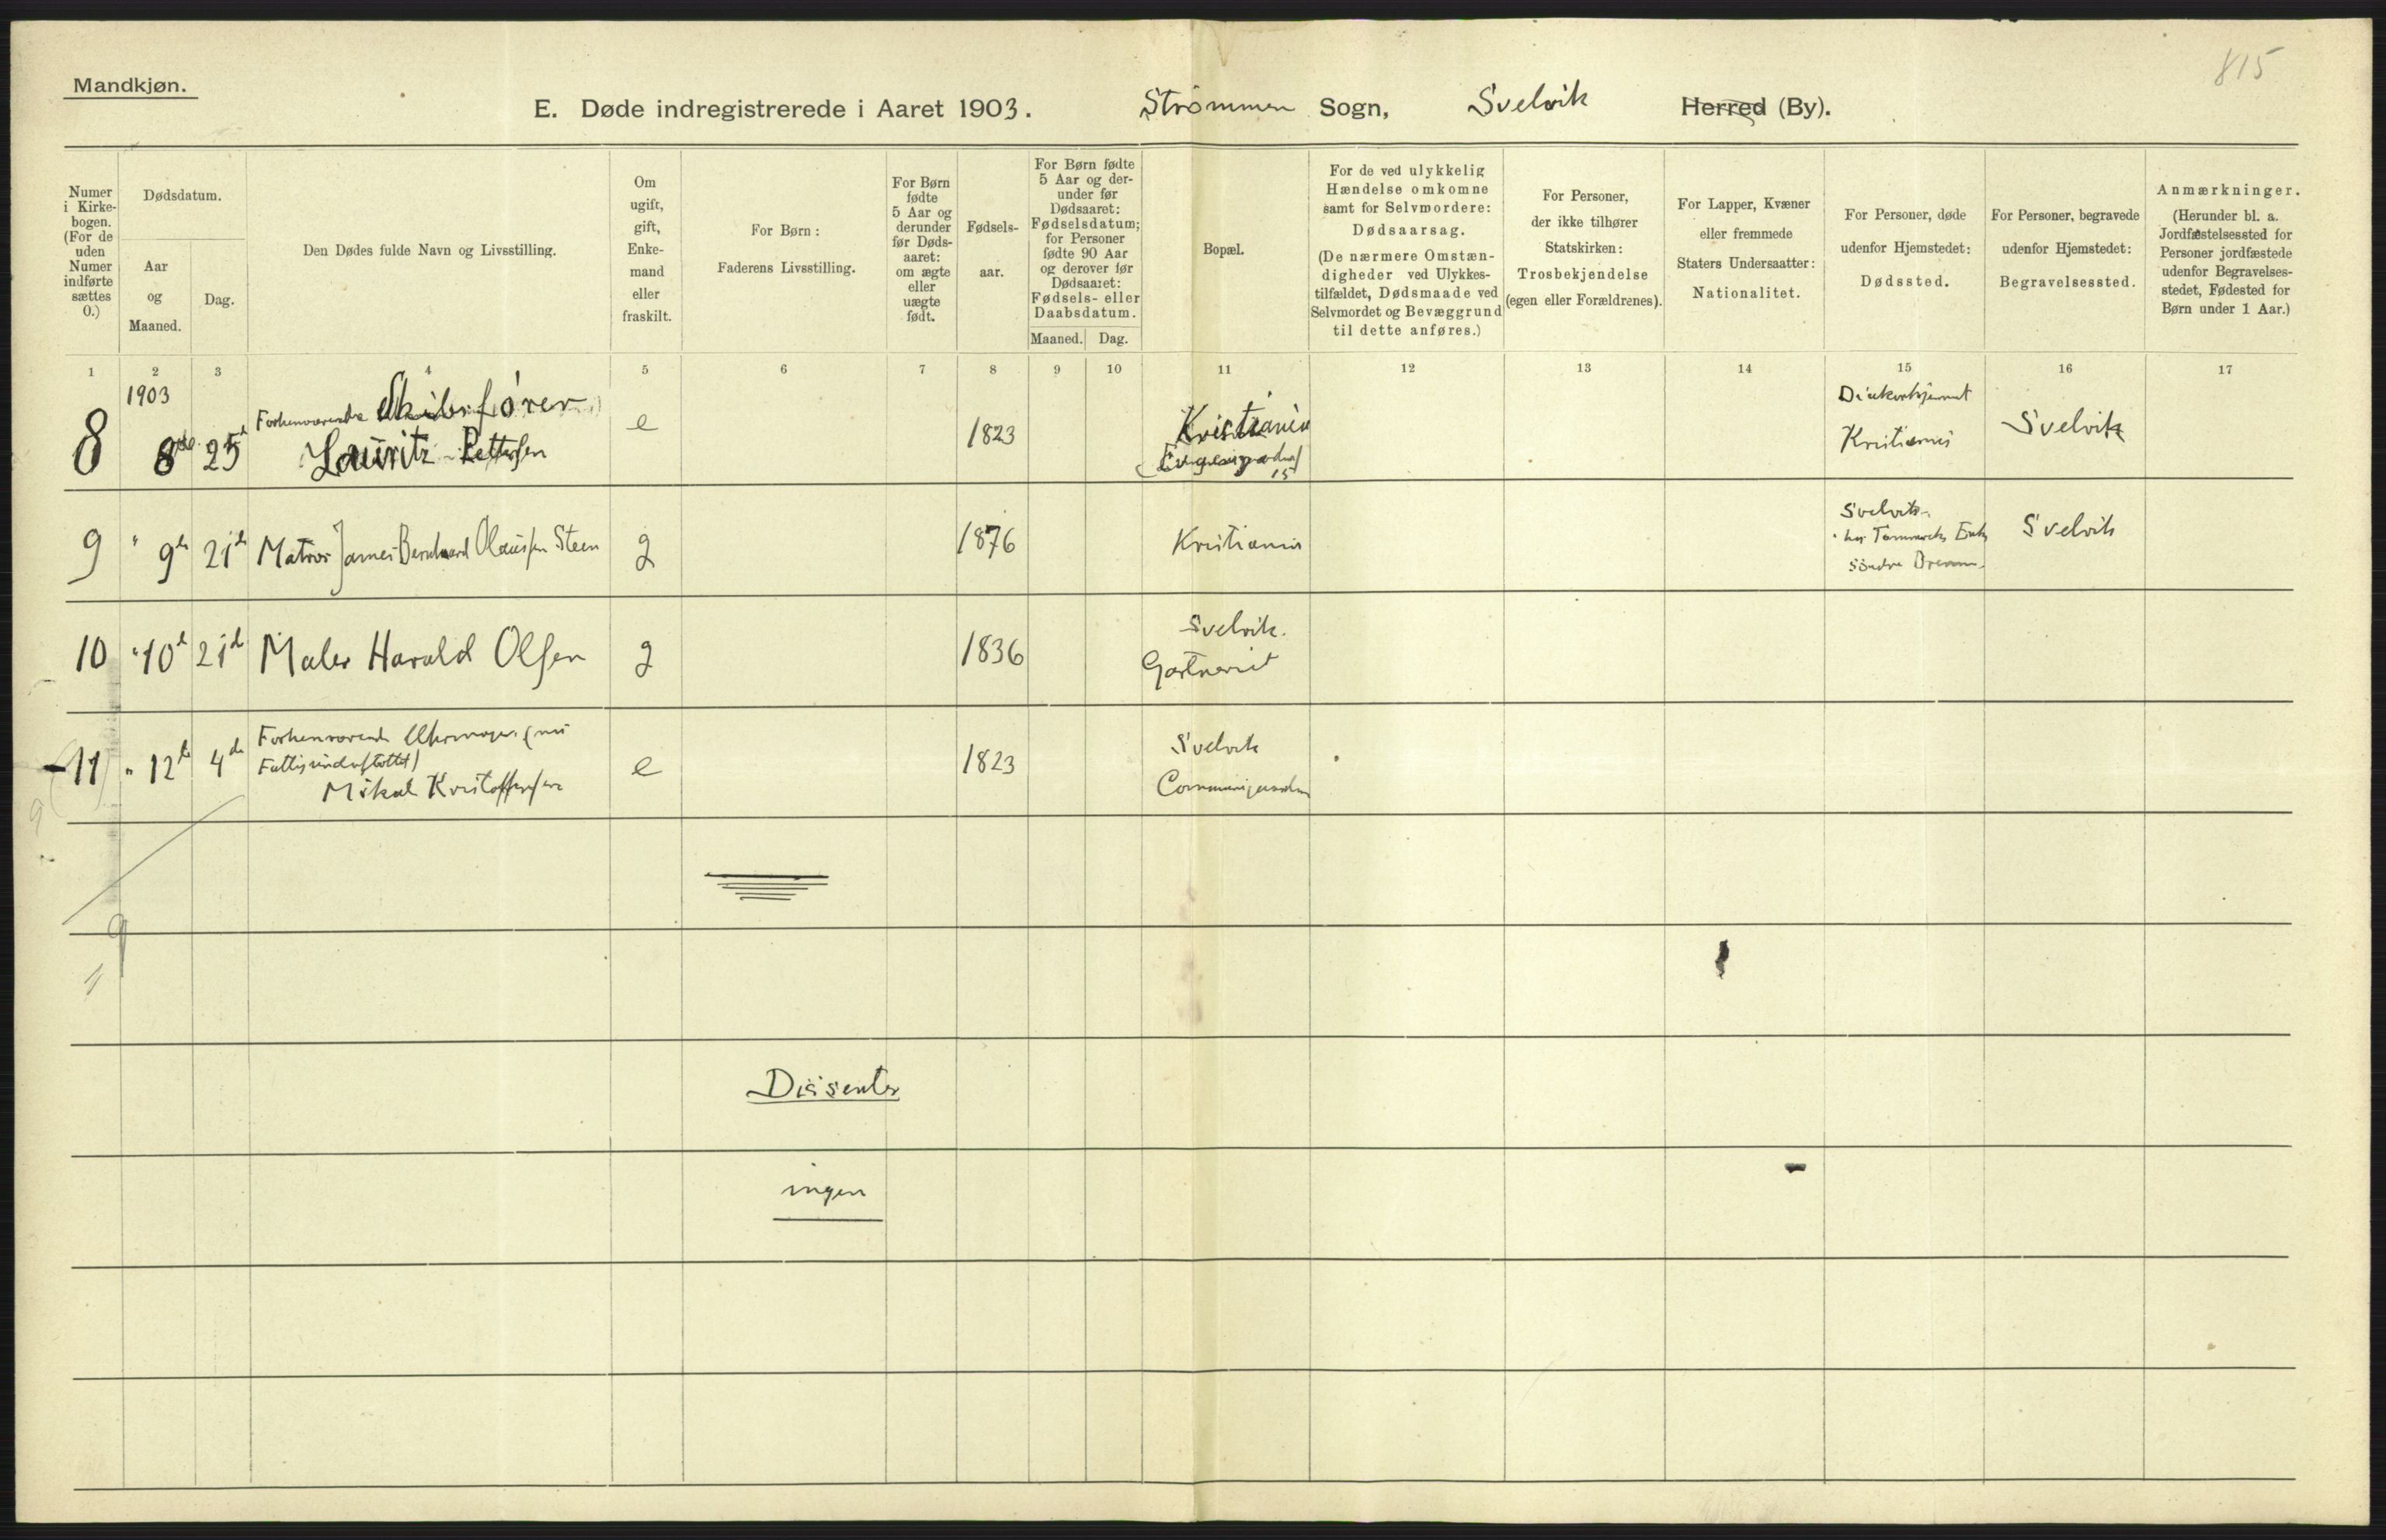 815
Mandkjøn.
E. Døde indregistrerede i Aaret 1903. Strömmen Sogn, Svelvik Herred (By).
Numer i Kirke-bogen. (For de uden Numer indførte sættes 0.)
Dødsdatum.
Aar og Maaned.
Dag.
Den Dødes fulde Navn og Livsstilling.
Om ugift, gift, Enke-mand eller fraskilt.
For Børn: Faderens Livsstilling.
For Børn fødte 5 Aar og derunder før Døds-aaret: om ægte eller uægte født.
Fødsels-aar.
For Børn fødte 5 Aar og der-under før Dødsaaret: Fødselsdatum; for Personer fødte 90 Aar og derover før Dødsaaret: Fødsels- eller Daabsdatum.
Maaned. Dag.
Bopæl.
For de ved ulykkelig Hændelse omkomne samt for Selvmordere: Dødsaarsag.
(De nærmere Omstæn-digheder ved Ulykkes-tilfældet, Dødsmaade ved Selvmordet og Bevæggrund til dette anføres.)
For Personer, der ikke tilhører Statskirken: Trosbekjendelse (egen eller Forældrenes).
For Lapper, Kvæner eller fremmede Staters Undersaatter: Nationalitet.
For Personer, døde udenfor Hjemstedet: Dødssted.
For Personer, begravede udenfor Hjemstedet: Begravelsessted.
Anmærkninger.
(Herunder bl. a. Jordfæstelsessted for Personer jordfæstede udenfor Begravelses-stedet, Fødested for Børn under 1 Aar.)
1 2 3 4 5 6 7 8 9 10 11 12 13 14 15 16 17
1903
8 8de 25d Forhenværende Skibsfører
Lauritz Pettersen e 1823 Kristiania
15
Kristiania Svelvik
9 " 9de 21d Matros James Bernhard Olaussen Steen g 1876 Kristiania Svelvik
Søndre
Svelvik
10 " 10d 21d Maler Harald Olsen g 1836 Svelvik.
Gartneriet
11 " 12te 4de Forhenværende (nu
Fattigunderstöttet)
Mikal Kristoffersen e 1823 Svelvik
9
Dissenter
ingen